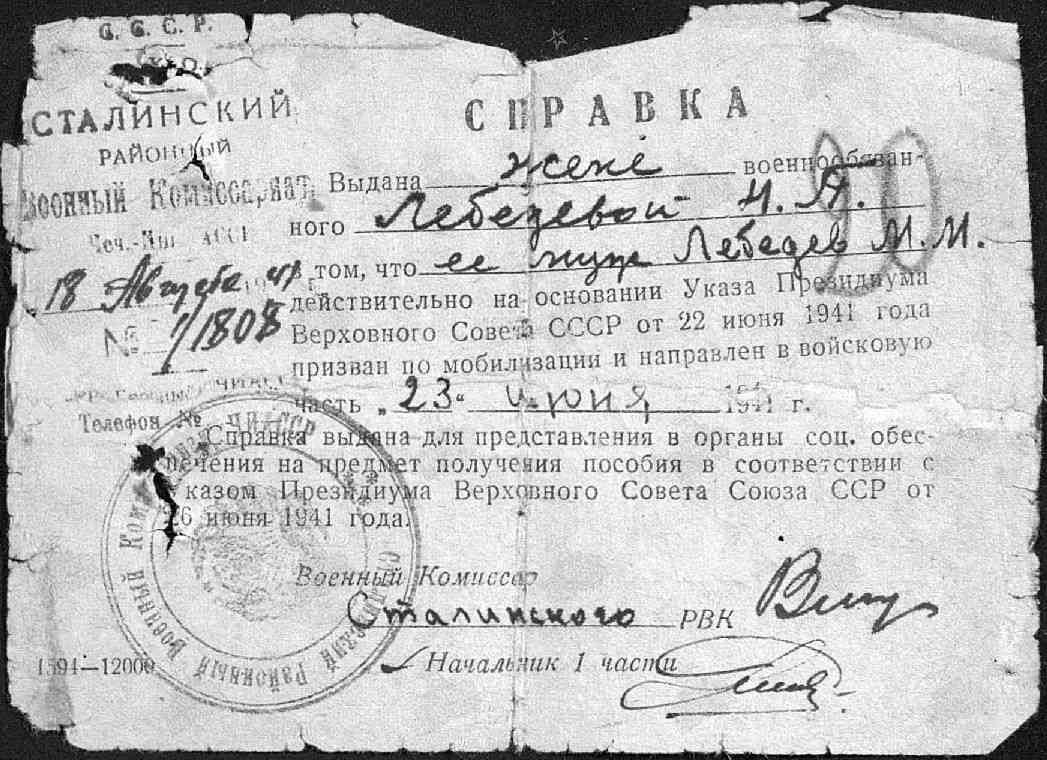 С. С. С. Р.
СТАЛИНСКИЙ
РАЙОННЫЙ
Военный Комиссариат
Чеч.-Инг. АССР
18 Августа 41 г.
№ 1/1808
Телефон №
СПРАВКА
Выдана жене военнообязан-
ного Лебедевой Н. Я.
в том, что ее муж Лебедев М. М.
действительно на основании Указа Президиума
Верховного Совета СССР от 22 июня 1941 года
призван по мобилизации и направлен в войсковую
часть „23“ июня 1941 г.
Справка выдана для представления в органы соц. обес-
печения на предмет получения пособия в соответствии с
Указом Президиума Верховного Совета Союза ССР от
26 июня 1941 года.
Военный Комиссар
Сталинского РВК
Начальник 1 части
1594—12000
90
Районный Военный ЧИАССР